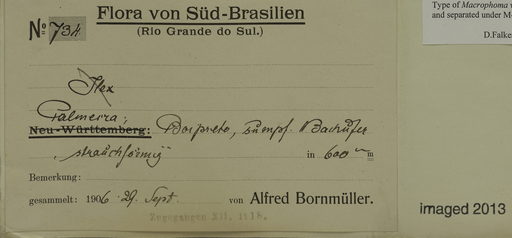 Flora von Süd-Brasilien
(Rio Grande do Sul.)
No 734
Ilex
Palmeira;
Neu-Württemberg: sumpf. Bachufer
strauchförmig in 600 m
Bemerkung:
gesammelt: 1906 29. Sept. von Alfred Bornmüller.
Zugegangen XII. 1918.
Type of Macrophoma
and separated under M
D.Falke
imaged 2013